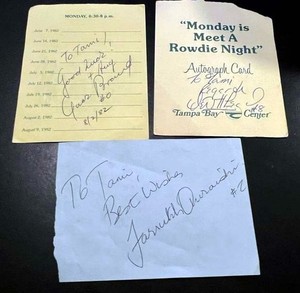 MONDAY, 6:30-8 p.m.
June 7, 1982
June 14, 1982
June 21, 1982
July 12, 1982
July 19, 1982
July 26, 1982
August 2, 1982
August 9, 1982
To Tami!
Good Luck!
8/2/82
"Monday is
Meet A
Rowdie Night"
Autograph Card
To Tami
#8
Tampa Bay Center
To Tami,
Best Wishes
Farrukh Quraishi
#2